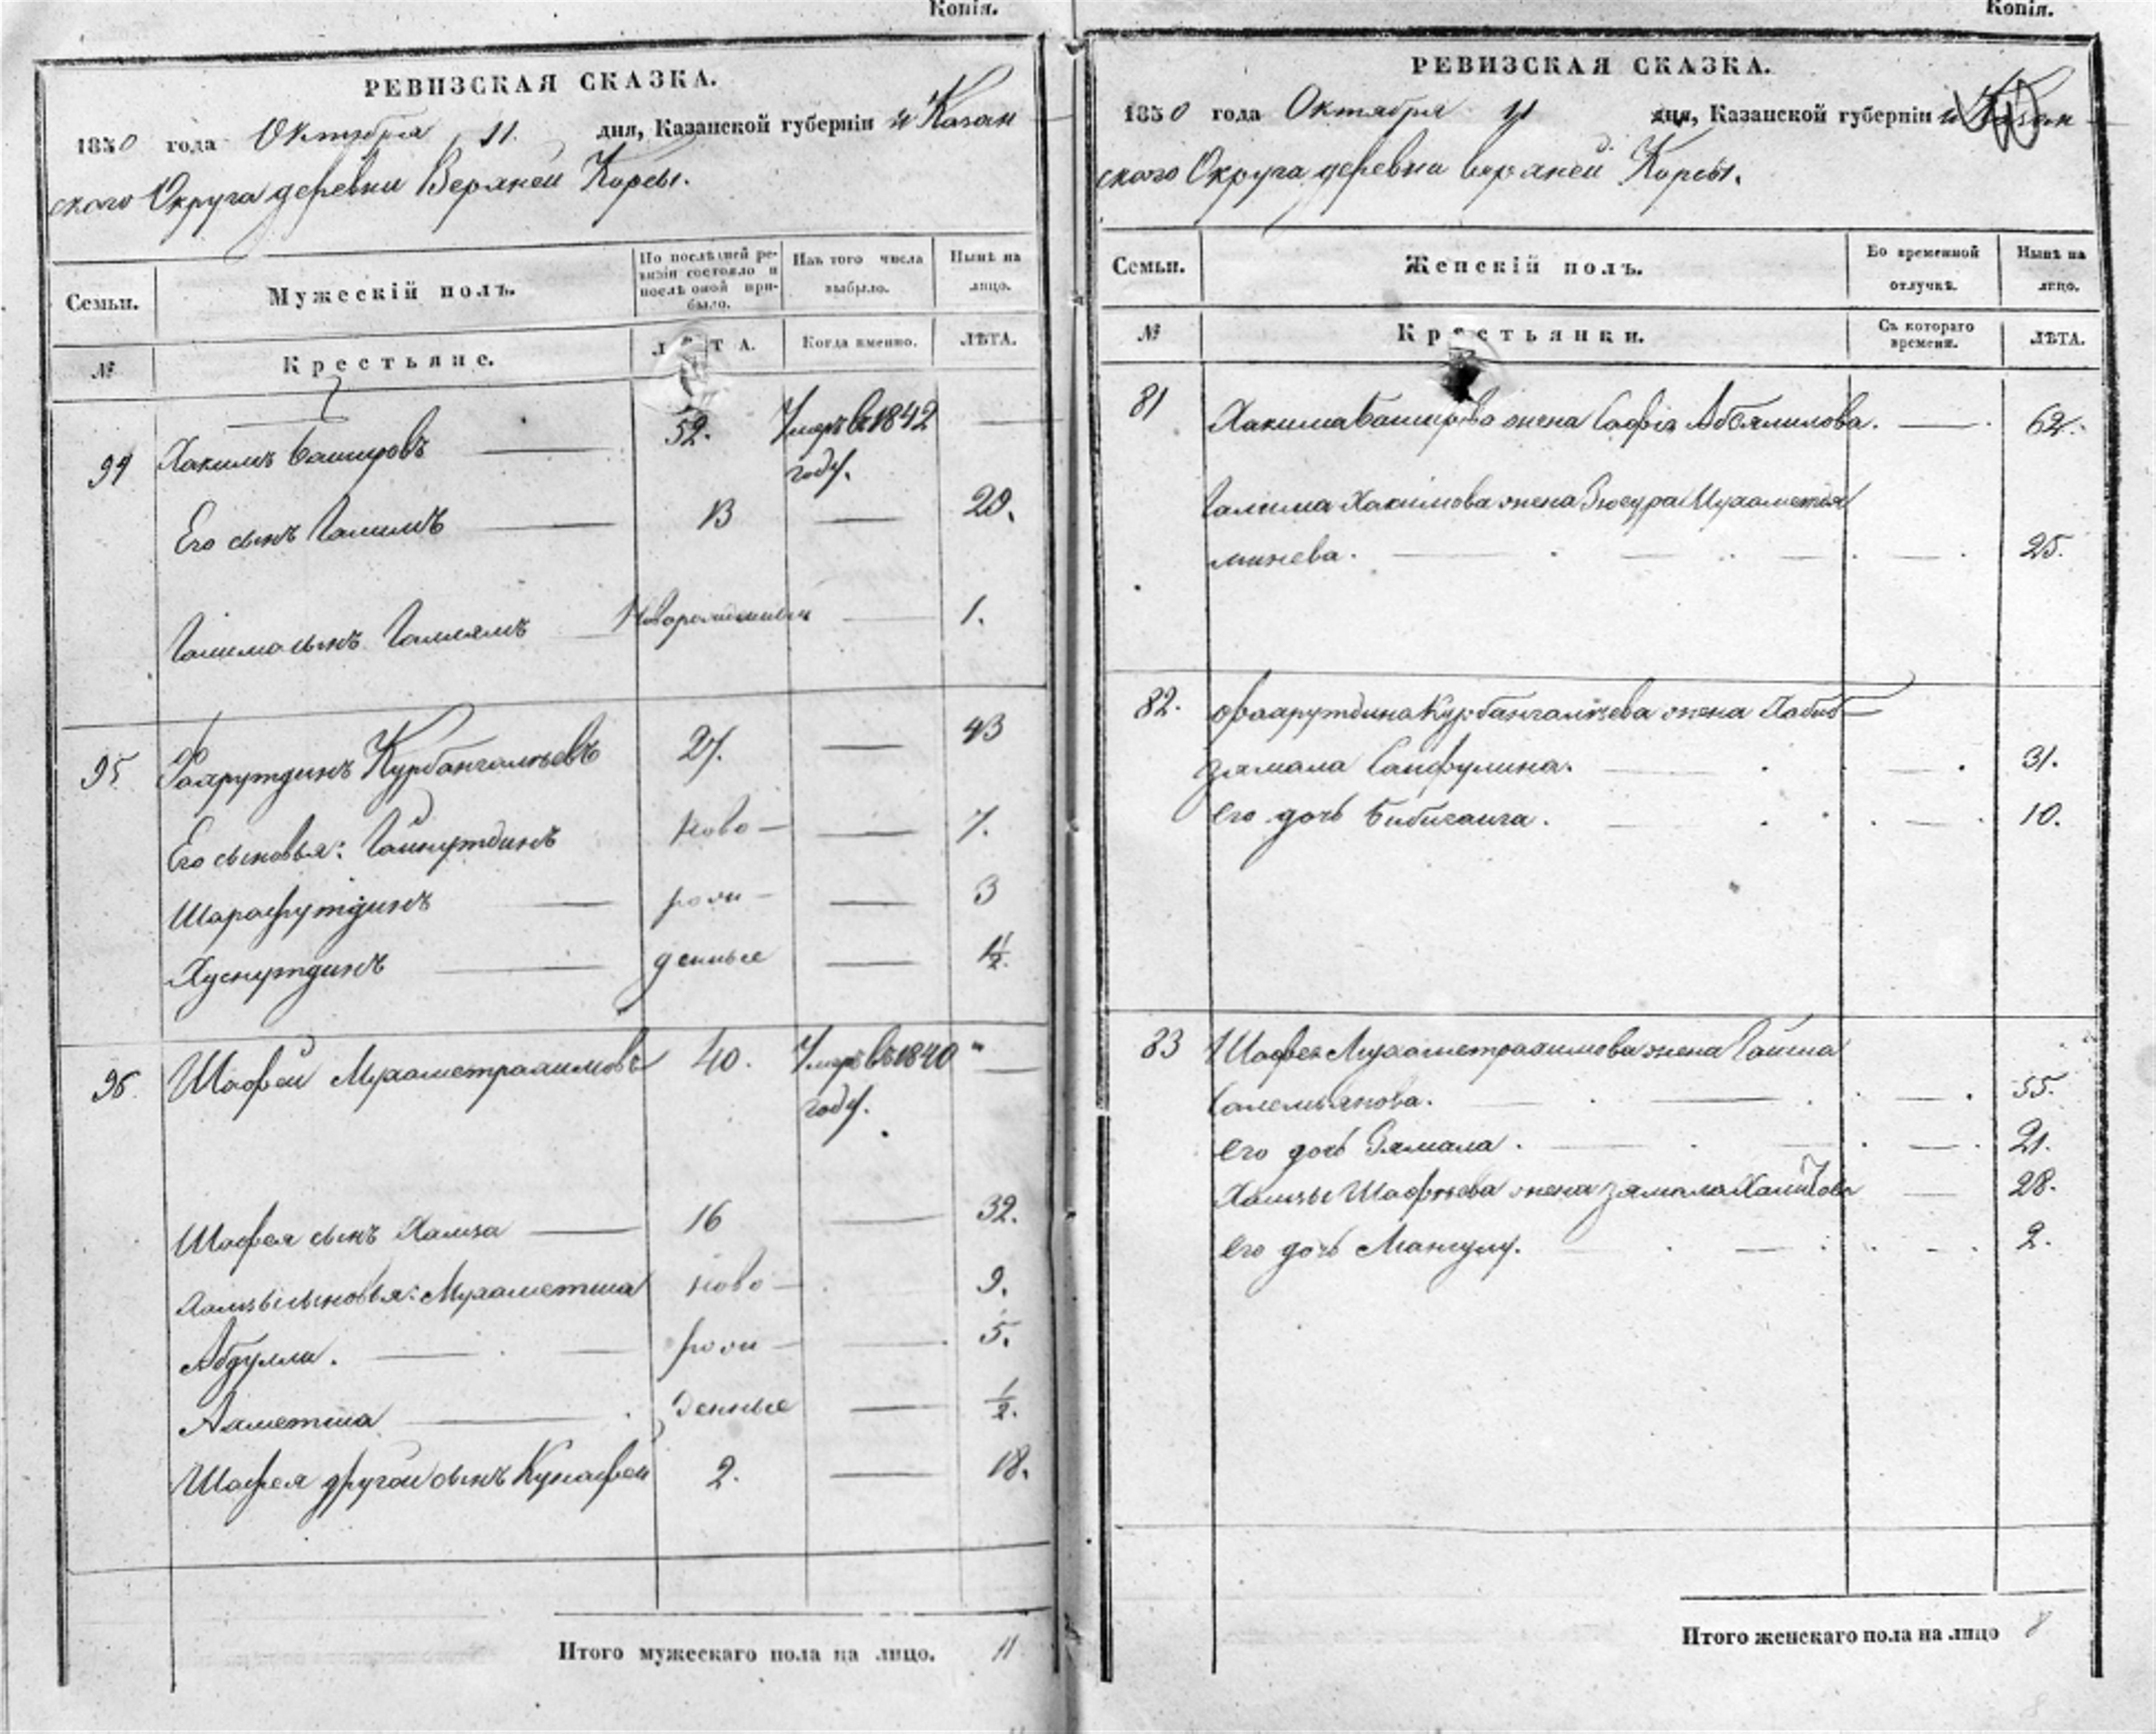 Копія.
РЕВИЗСКАЯ СКАЗКА.
1850 года Октября 11. дня, Казанской губерніи и Казан
ского Округа деревни Верхней Корсы.
Семьи. Мужескій полъ. По послѣдней ревизіи состояло и послѣ оной прибыло. Изъ того числа выбыло. Нынѣ на лицо.
№ Крестьяне. ЛѢТА. Когда именно. ЛѢТА.
94 Хакимъ Башировъ 52. Умеръ въ 1842
году.
Его сынъ Галимъ 13 29.
Галима сынъ Новорожденный 1.
95 Фахрутдинъ Курбангалѣевъ 27. 43
Его сыновья: Гайнутдинъ ново- 7.
Шарафутдинъ рож- 3
Хуснутдинъ денные 1½
96 Шафей Мухаметрахимовъ 40. Умеръ въ 1840
году.
Шафея сынъ Хамза 16 32.
Хамзы сыновья: Мухаметша ново- 9.
Абдулла. рож- 5.
Ахметша денные ½.
Шафея другой сынъ Кунафей 2. 18.
Итого мужескаго пола на лицо. 11
Копія.
РЕВИЗСКАЯ СКАЗКА.
1850 года Октября 11 дня, Казанской губерніи и Казан
ского Округа деревни Верхней Корсы.
Семьи. Женскій полъ. Во временной отлучкѣ. Нынѣ на лицо.
№ Крестьянки. Съ котораго времени. ЛѢТА.
81 Хакима Баширова жена Сафія Абдялилова. 62.
Галима Хакимова жена
25.
82. Фахрутдина Курбангалѣева жена Хабиб
зямала Сайфулина. 31.
его дочь 10.
83 Шафея Мухаметрахимова жена Гайша
Салемьянова. 55.
его дочь Зямала. 21.
Хамзы Шафѣева жена Зямала 28.
его дочь 2.
Итого женскаго пола на лицо 8